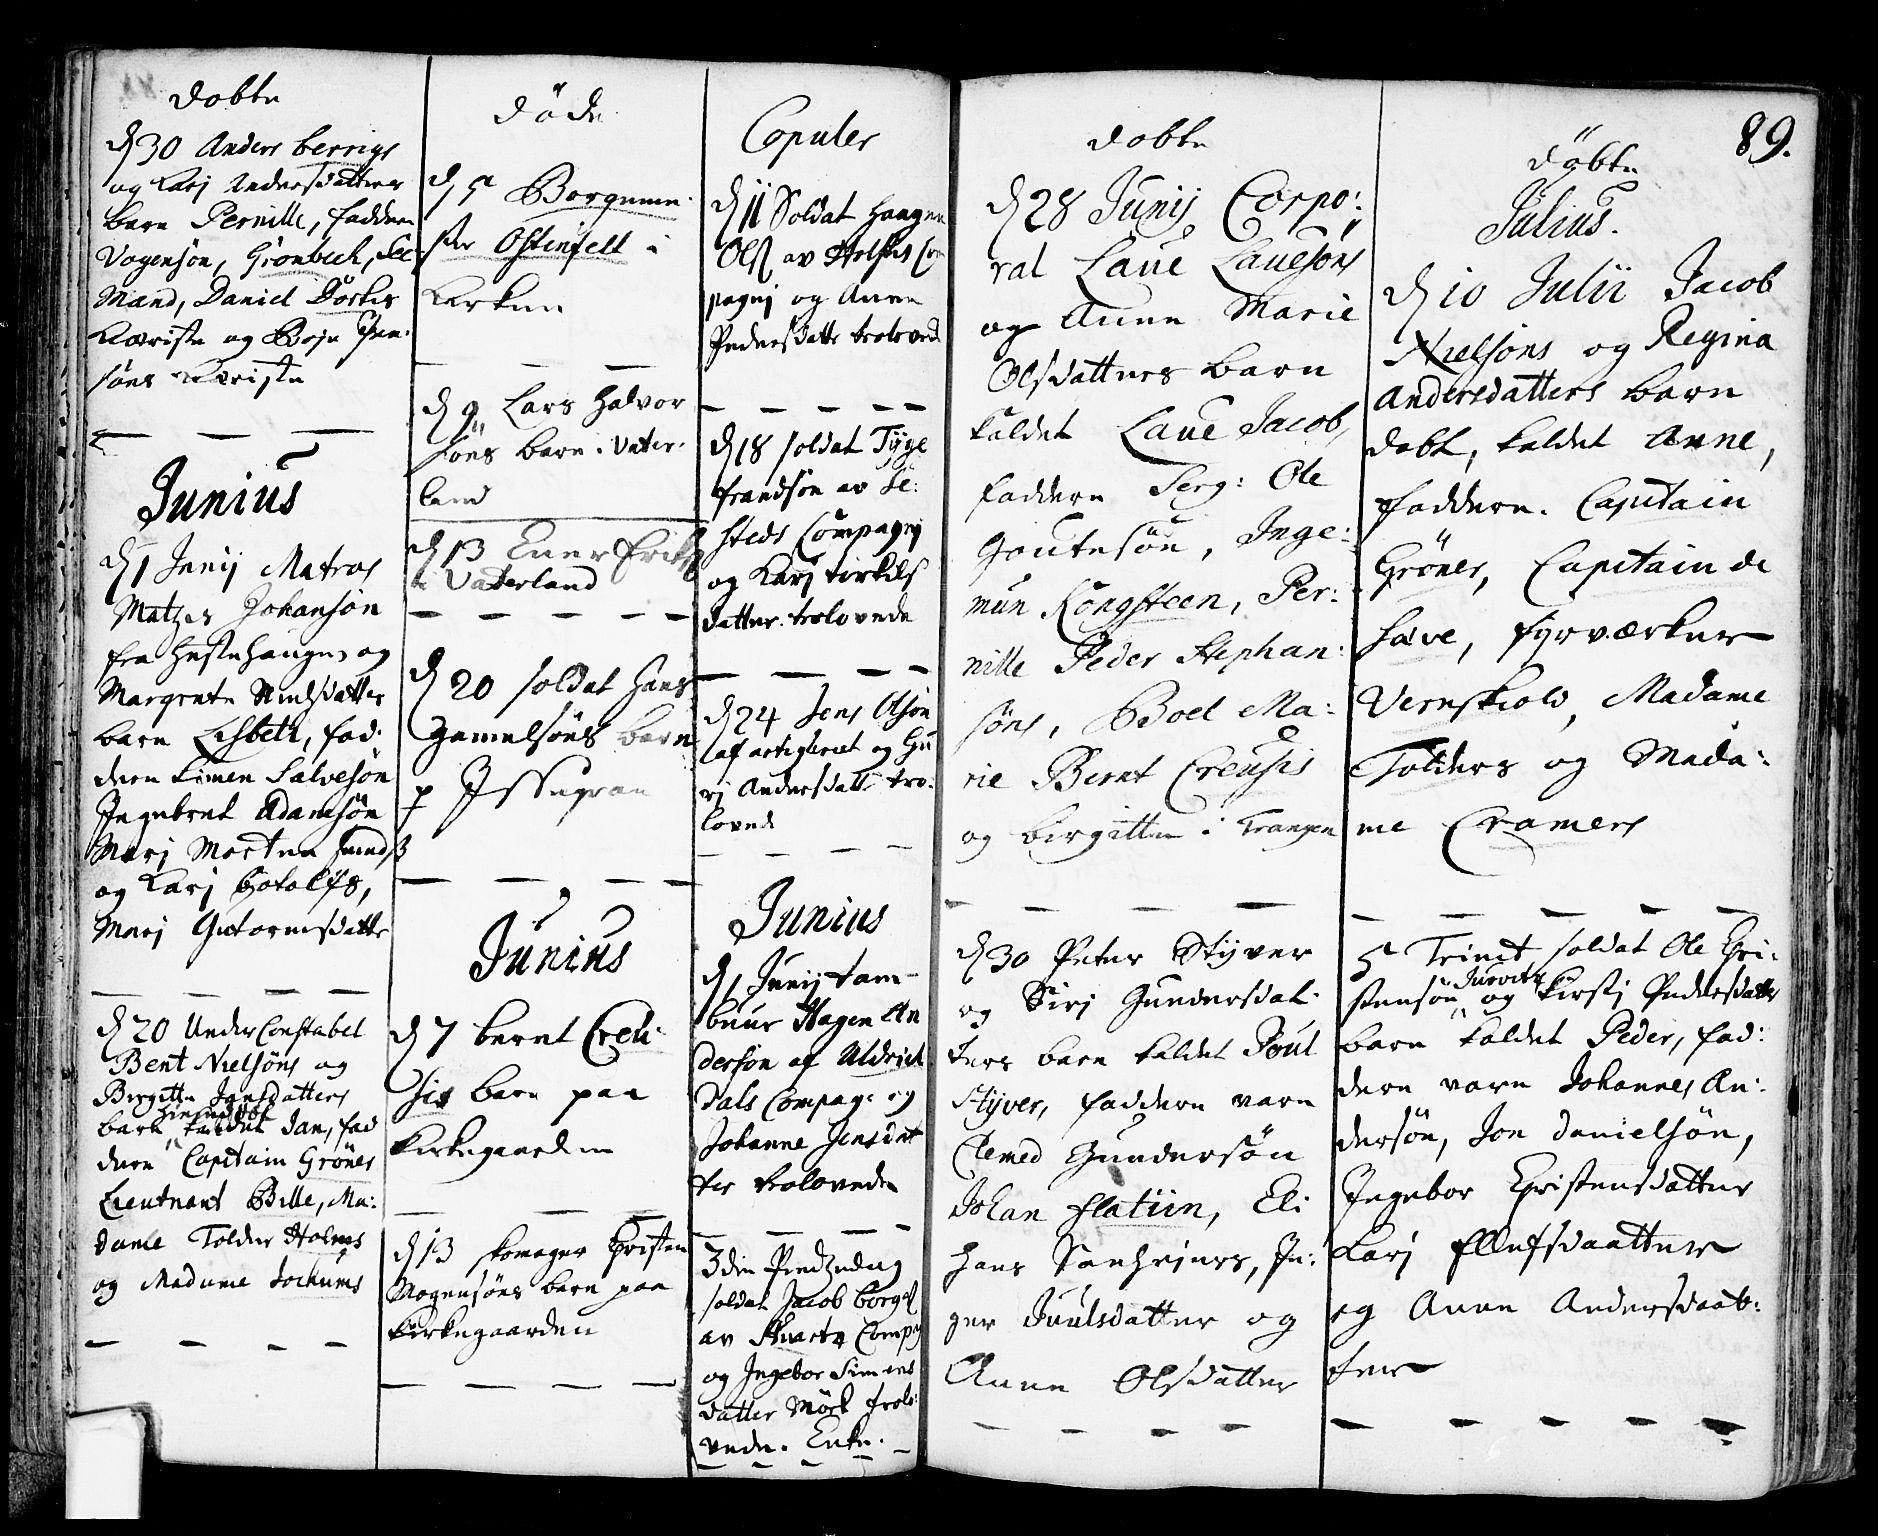 dobte
d 30 Anders berrigs
og Karj Andersdatters
barn Pernille, faddere
Vogensøn, Grønbech, See
Mand, Daniel Dorkes
Kæriste og Boje
søns Kæriste
Junius
d 1 Junij Matros
Matzes Johansøn
fra Hestehaugen og
Margrete Nielsdatter
barn Lisbeth, fad:
dere Simen Salvesøn
Ingebret Adamsøn
Marj Morten smeds
og Karj Botolfs,
Marj Gutormsdatter
d 20 UnderConstabel
Bent Nielsøns og
Birgitte Jansdatters
barn kaldet Jan, fad
dere Capitain Grøner
Lieutnant Bille, Ma:
dame Tolder Holmes
og Madame Jochums
døde
d 5 Borgeme:
ster Ostenfelt i
Kerken
d 9 Lars Halvor
søns barn i Vater:
land
d 13 Ener Erichs
i Vaterland
d 20 soldat Hans
Gamelsøns barn
p Issegran
Junius
d 7 bernt Creu:
sis barn paa
Kirkegaarden
d 13 skomager Christen
Mogensøns barn paa
Kirkegaarden
Copuler
d 11 Soldat Haagen
Ols av Holstes Com
pagnj og Anne
Pedersdatter trolovede
d 18 soldat Tyge
frandsøn av Se:
steds Compagnj
og Karj tirkils
datter trolovede
d 24 Jens Olsøn
af artigleriet og Gu
rj Andersdatt tro:
lovede
Junius
d 1 Junij tam-
buur Hagen An
dersøn af Uldrich
dals Compag: og
Johanne Jensdat
ter trolovede
3die Pindzedag
soldat Jacob borgs
av Stuartz Compag
og Ingebor Simens
datter Mørk trolo:
vede. Enke.
dobte
d 28 Junij Corpo:
ral Laue Lauesøns
og Anne Marie
Olsdatters barn
kaldet Laue Jacob,
faddere Serg: Ole
Goutesøn, Inge:
mun Kongsteen, Per:
nille Peder Stephan:
søns, Boel Ma:
rie Bernt Creusis
og birgitte i Krangen
d 30 Peter Styver
og Sirj Gundersdat:
ters barn kaldet Poul
Styver, faddere vare
Clemed Gundersøn
Johan flatiin, Eli
Hans Sanhejners, In:
ger Juulsdatter og
Anne Olsdatter
89.
døbte
Julius.
d 10 Julii Jacob
Nielsøns og Regina
Andersdatters barn
dobt, kaldet Anne,
faddere. Capitain
Grøner, Capitain de
Save, fyrværker
Vernskiold, Madame
Tolders og Mada:
me Cramers
5 Trinit, soldat Ole Chri:
stensøn og Kirstj Pedersdatter
barn kaldet Peder, fad:
dere vare Johannes An:
dersøn, Jon danielsøn,
Ingebor Christensdatter
Karj Ellefsdaatter
og Anne Andersdaat:
ter